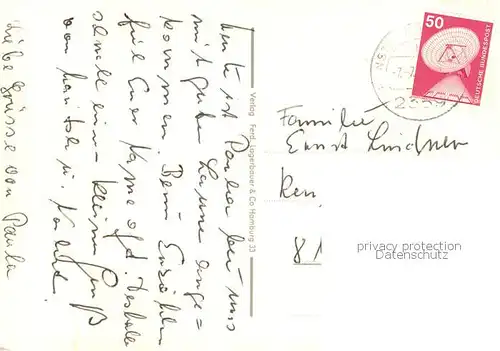 Heute ist Paula bei uns
mit guter Laune ange=
kommen. Beim Erzählen
fiel Euer Name oft. Deshalb
schnell ein kleiner Gruß
von
Liebe Grüsse von Paula
Verlag Ferd. Lagerbauer & Co Hamburg 33
50
DEUTSCHE BUNDESPOST
Familie
Ernst Lindner
81
privacy protection
Datenschutz